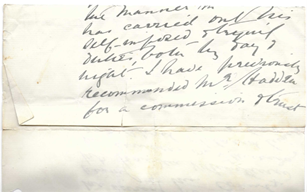 the manner in
has carried out his
self-imposed & trying
duties, both by day &
night I have previously
recommended Mr Hadden
for a commission & trust